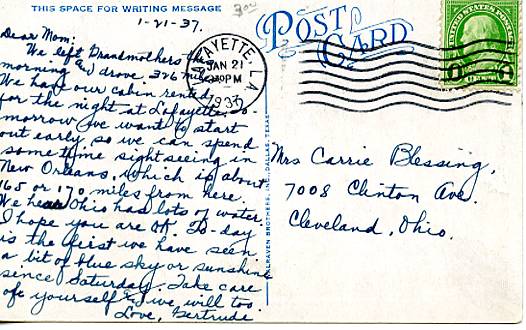 THIS SPACE FOR WRITING MESSAGE
1-21-37.
Dear Mom:
We left Grandmothers this
morning and drove 326 miles.
We have our cabin rented
for the night at Lafayette. To-
morrow we want to start
out early so we can spend
some time sight seeing in
New Orleans, which is about
165 or 170 miles from here.
We hear Ohio has lots of water.
I hope you are OK. To-day
is the first we have seen
a bit of blue sky or sunshine
since Saturday. Take care
of yourself & we will too.
Love, Gertrude
300
POST CARD
LAFAYETTE, LA.
JAN 21
PM
1937
UNITED STATES POSTAGE
Mrs Carrie Blessing,
7008 Clinton Ave.
Cleveland, Ohio.
BROTHERS, INC., DALLAS, TEXAS